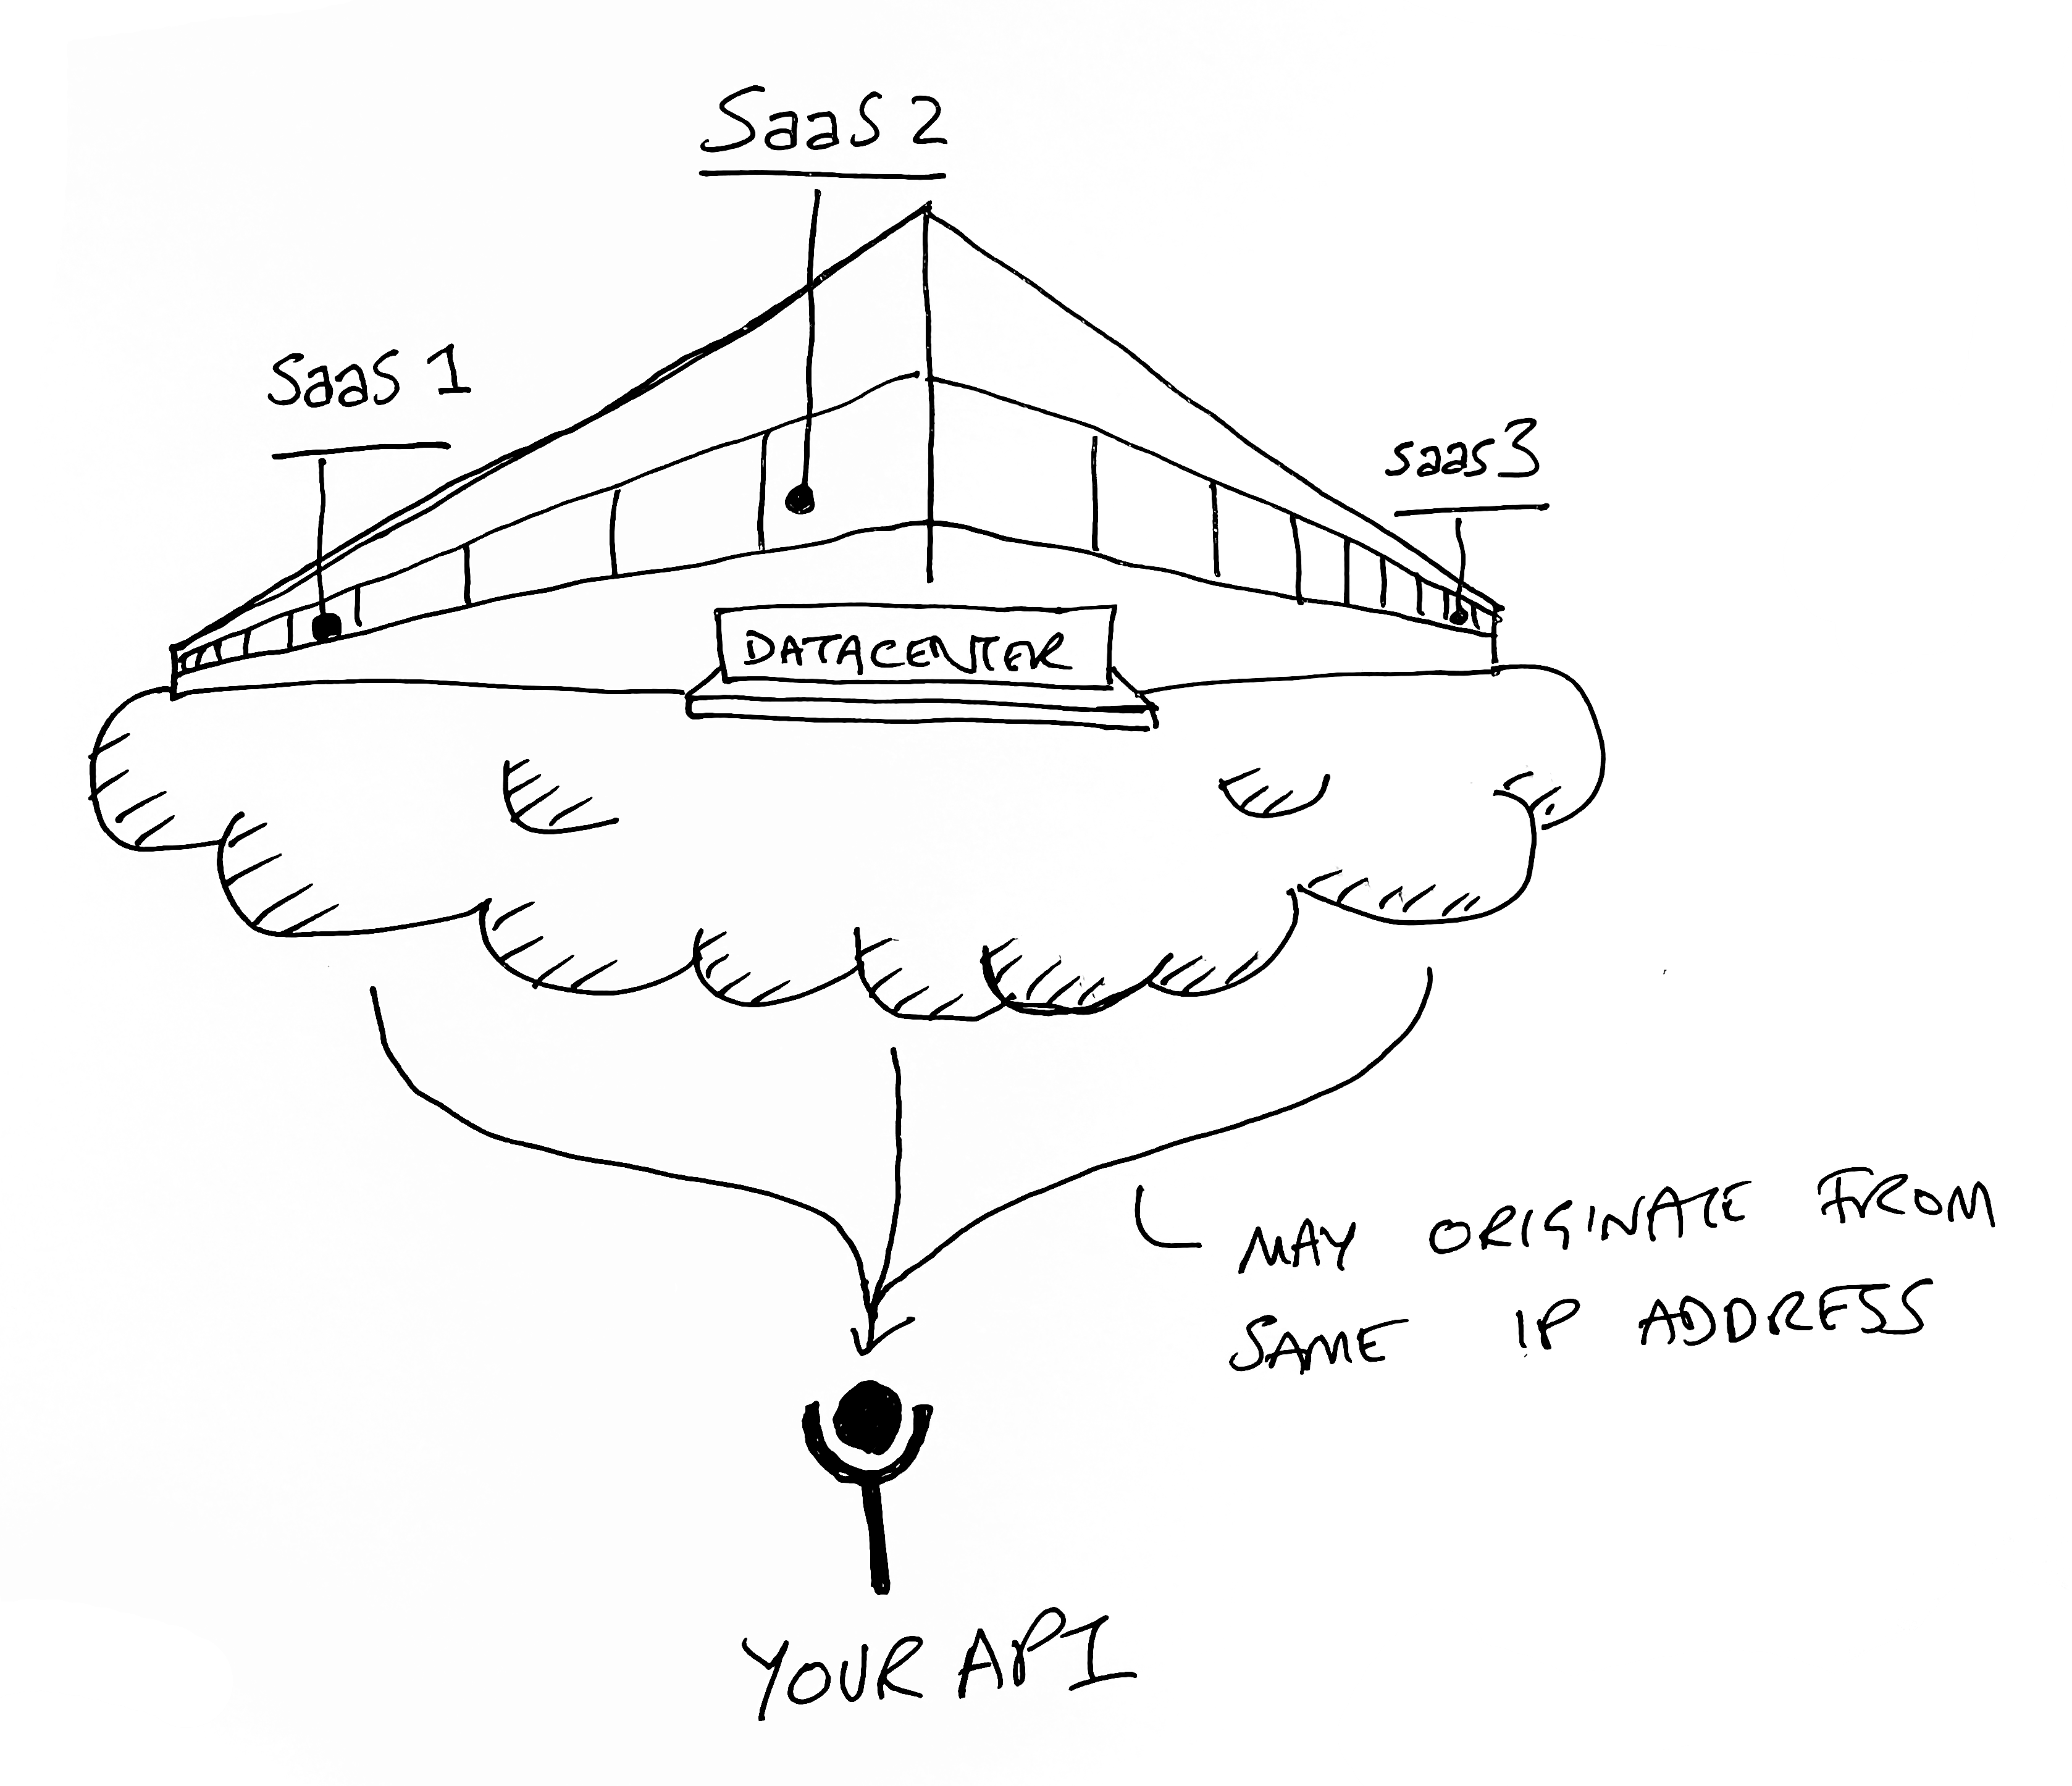 SaaS 2
SaaS 1
saas 3
DATACENTER
MAY ORIGINATE FROM
SAME IP ADDRESS
YOUR API